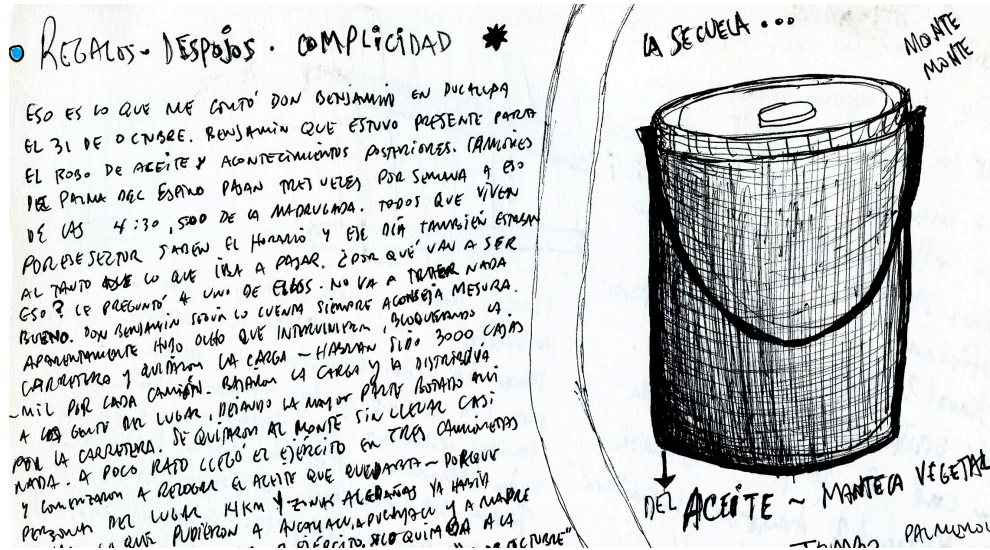 REGALOS - DESPOJOS - COMPLICIDAD
ESO ES LO QUE ME CONTÓ DON BENJAMIN EN PUCALLPA
EL 31 DE OCTUBRE. BENJAMIN QUE ESTUVO PRESENTE PARA
EL ROBO DE ACEITE Y ACONTECIMIENTOS POSTERIORES. CAMIONES
DEL PALMA DEL ESPINO PASAN TRES VECES POR SEMANA A ESO
DE LAS 4:30, 5:00 DE LA MADRUGADA. TODOS QUE VIVEN
POR ESE SECTOR SABEN EL HORARIO Y ESE DÍA TAMBIÉN ESTABAN
AL TANTO LO QUE IBA A PASAR. ¿POR QUÉ VAN A SER
ESO? LE PREGUNTÓ A UNO DE ELLOS. NO VA A TRAER NADA
BUENO. DON BENJAMIN SEGÚN LO CUENTA SIEMPRE ACONSEJA MESURA.
APARENTEMENTE HUBO OCHO QUE INTERVINIERON, BLOQUEANDO LA
CARRETERA Y QUITARON LA CARGA ~ HABRIAN SIDO 3000 CAJAS
~ MIL POR CADA CAMIÓN. BAJARON LA CARGA Y LA DISTRIBUÍA
A LOS GENTE DEL LUGAR, DEJANDO LA MAYOR PARTE BOTADO AHÍ
POR LA CARRETERA. SE QUITARON AL MONTE SIN LLEVAR CASI
NADA. A POCO RATO LLEGÓ EL EJÉRCITO EN TRES CAMIONETAS
Y COMENZARON A RECOGER EL ACEITE QUE QUEDABA ~ PORQUE
PERSONAS DEL LUGAR 14KM Y ZONAS ALEDAÑAS YA HABÍA
LA QUE PUDIERON A Y A MADRE
EJÉRCITO. A LA
OCTUBRE"
LA SECUELA ...
MONTE
MONTE
DEL ACEITE ~ MANTECA VEGETAL